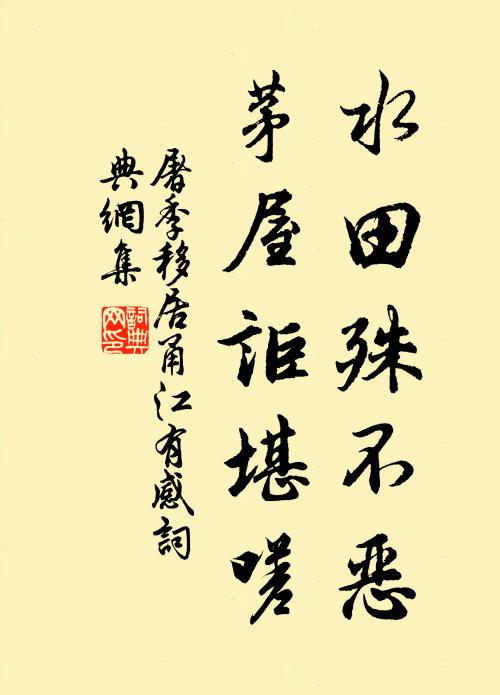 水田殊不惡
茅屋詎堪嗟
屠季移居甬江有感詞
典網集
詞典
网印